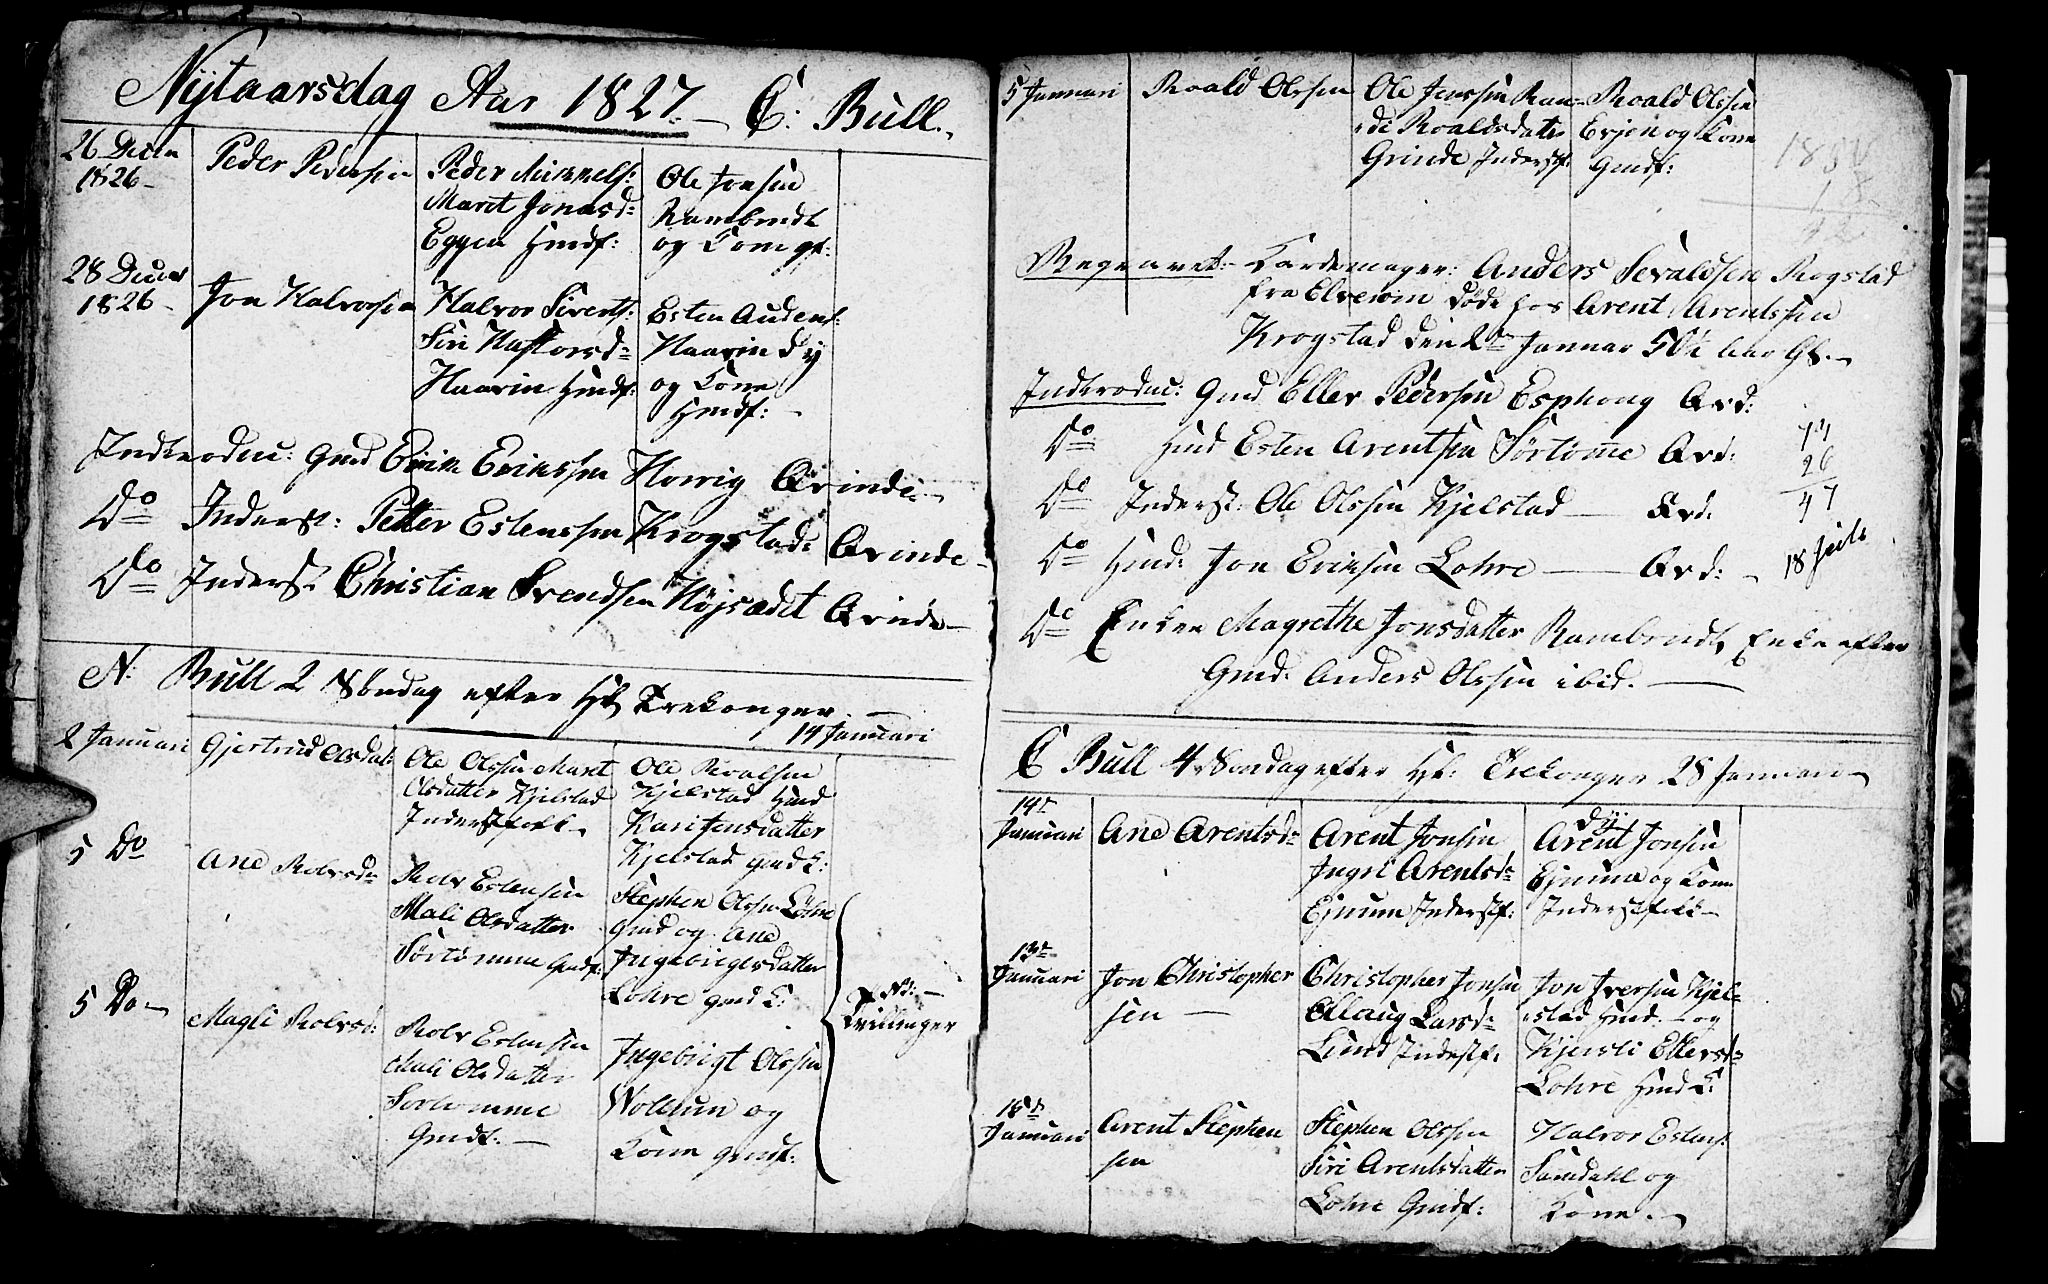 Nytaarsdag Aar 1827. — C: Bull.
26 Decem
1826 —
Peder Pedersen
Peder Mikkels:
Marit Jonasd:
Eggen Huusf:
Ole Jonsen
Rambraut
og Kone gf:
28 Decem
1826 —
Jon Halvorsen
Halvor Siverts:
Siri Haftorsd:
Haarin Huusf:
Esten Audens:
Haarin dy
og Kone
Huusf: —
Introduc: Gmd Erik Eriksen Horrig Qvinde —
Do Inderst: Petter Estenssen Krogstad: Qvinde —
Do Inderst Christian Svendsen Højsædet Qvinde —
N: Bull 2 Søndag efter Hl Trekonger —
14 Januari
2 Januari
Gjertrud Olsdat:
Ole Olssen Marit
Olsdatter Kjelstad
Inderstfolk —
Ole Roalsen
Kjelstad Huusd
Kari Jensdatter
Kjelstad gmd K:
5 Do
Ane Rolvsd:
Rolv Estensen
Mali Olsdatter
Sørtømme Gmdf:
Stephen Olssen Løhre
gmd og Ane
Ingebrigtsdatter
Lohre gmd K:
5 Do —
Magli Rolvsd:
Rolv Estensen
Mali Olsdatter
Sortomme
Gmdf: —
Ingebrigt Olssen
Wollum og
Kone gmdf:
NB: —
Tvillinger
5 Januari
Roald Olssen
Ole Jenssen Ran=
=di Roaldsdatter
Grinde Inderstf:
Roald Olssen
Evjen og Kone
Gmdf:
Begravet: Kardemager: Anders Sevaldsen Rogstad
fra Elverom døde hos Arent Arentssen
Krogstad den 2den Januar 50½ aar Gl. —
Introduc: Gmd Eller Pedersen Esphoug Qvd:
Do Hmd Esten Arentsen Sørtømme Qvd:
Do Inderst: Ole Olssen Kjelstad — Qvd:
Do Hmd: Jon Eriksen Lohre — Qvd: —
26
47
18
Do Enken Magrethe Jonsdatter Rambraut, Enke efter
Gmd: Anders Olssen ibid. —
C Bull 4 Søndag efter Hl: Trekonger 28 Januari —
14de
Januari
Ane Arentsd:
Arent Jonsen
Ingri Arentsd:
Ejnum Inderstf:
dy
Arent Jonsen
Ejnum og Kone
Inderstfolk —
13de
Januari
Jon Christopher
sen —
Christopher Jonsen
Allaug Larsd:
Lund Indestf:
Jon Iversen Kjel=
=stad Hmd: og
Kjersti Ellersd:
Lohre Hmd K:
18de
Januari
Arent Stephen
sen
Stephen Olssen
Siri Arentsdatter
Lohre Gmdf:
Halvor Estens:
Samdahl og
Kone. —